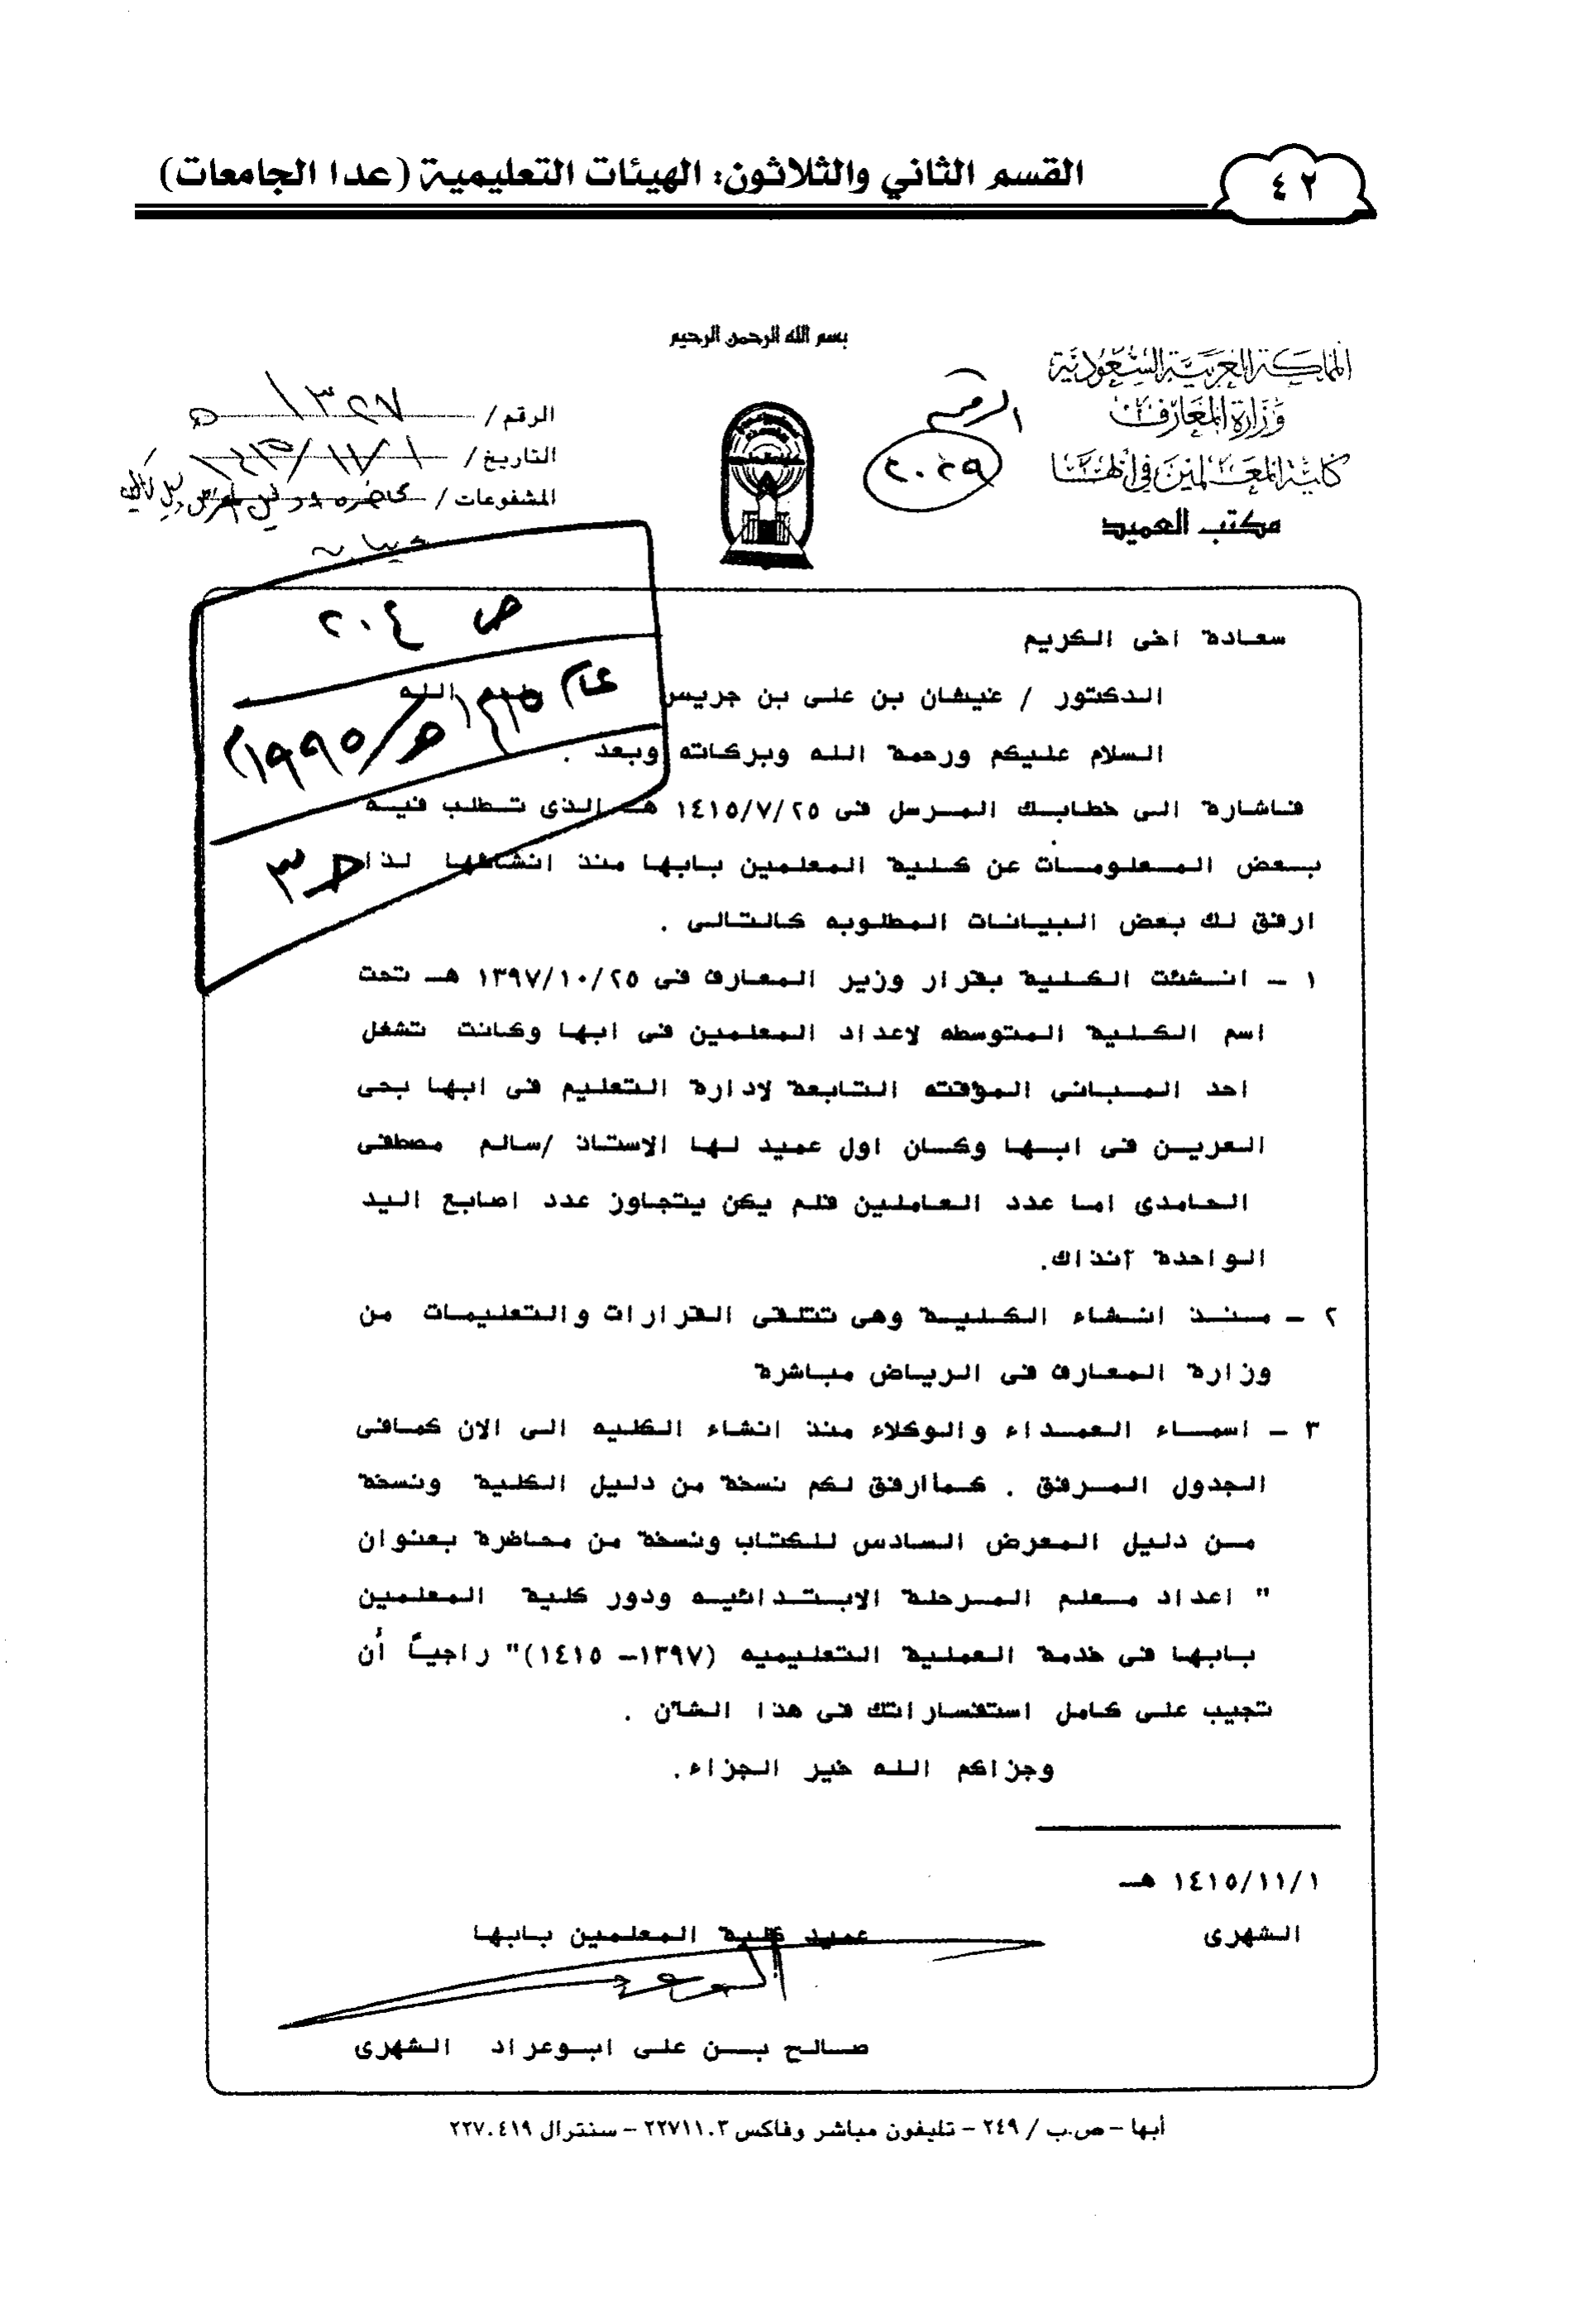 ٤٢
القسم الثاني والثلاثون: الهيئات التعليمية (عدا الجامعات)
بسم الله الرحمن الرحيم
المملكة العربية السعودية
وزارة المعارف
كلية المعلمين في أبها
مكتب العميد
الرقم
٢٠٢٩
الرقم / ١٣٢٧
التاريخ / ١٤١٥/١١/١
المشفوعات / محاضره ودليل
ص ٢٠٤
عام ١٤١٥هـ/١٩٩٥م
حـ ٣
سعادة اخى الكريم
الدكتور / غيثان بن على بن جريس سلمه الله
السلام عليكم ورحمة الله وبركاته وبعد .
فاشارة الى خطابك المرسل فى ١٤١٥/٧/٢٥ هـ الذى تطلب فيه
بعض المعلومات عن كلية المعلمين بابها منذ انشائها لذا
ارفق لك بعض البيانات المطلوبه كالتالى .
١ - انشئت الكلية بقرار وزير المعارف فى ١٣٩٧/١٠/٢٥ هـ تحت
اسم الكلية المتوسطه لاعداد المعلمين فى ابها وكانت تشغل
احد المبانى المؤقته التابعة لادارة التعليم فى ابها بحى
العرين فى ابها وكان اول عميد لها الاستاذ /سالم مصطفى
الحامدى اما عدد العاملين فلم يكن يتجاوز عدد اصابع اليد
الواحدة آنذاك.
٢ - منذ انشاء الكلية وهى تتلقى القرارات والتعليمات من
وزارة المعارف فى الرياض مباشرة
٣ - اسماء العمداء والوكلاء منذ انشاء الكليه الى الان كمافى
الجدول المرفق . كماأرفق لكم نسخة من دليل الكلية ونسخة
من دليل المعرض السادس للكتاب ونسخة من محاضرة بعنوان
" اعداد معلم المرحلة الابتدائيه ودور كلية المعلمين
بابها فى خدمة العملية التعليميه (١٣٩٧- ١٤١٥)" راجياً أن
تجيب على كامل استفساراتك فى هذا الشأن .
وجزاكم الله خير الجزاء.
١٤١٥/١١/١ هـ
الشهرى
عميد كلية المعلمين بابها
صالح بن على ابوعراد الشهرى
أبها - ص.ب / ٢٤٩ - تليفون مباشر وفاكس ٢٢٧١١٠٣ - سنترال ٢٢٧٠٤١٩